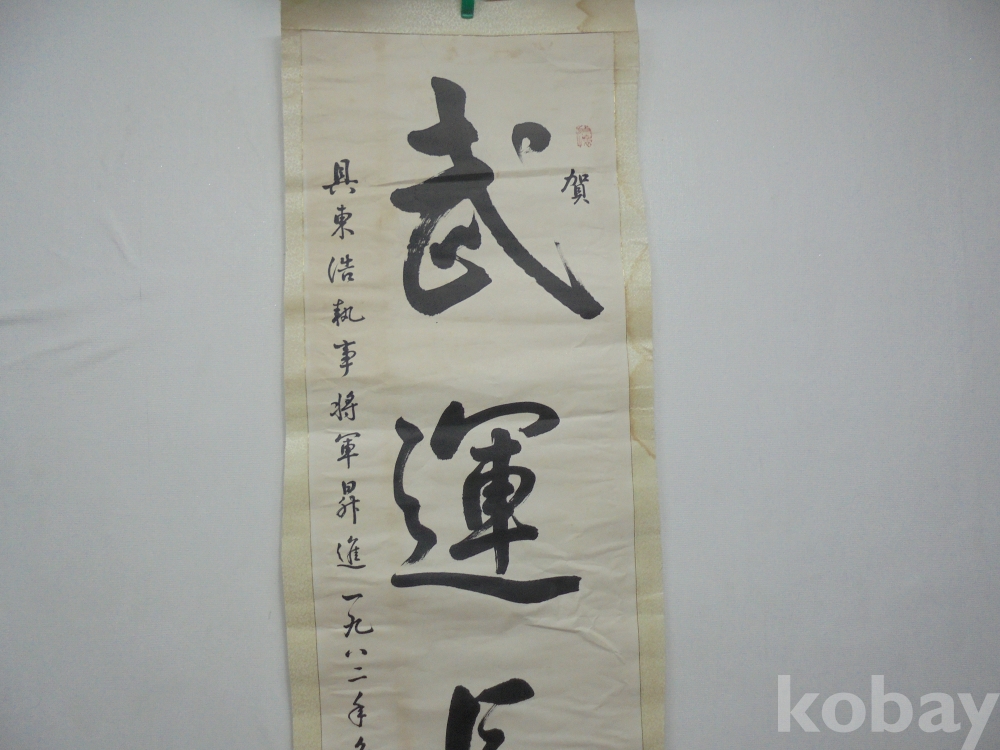 賀
武運
具東浩執事将軍昇進一九八二年
kobay